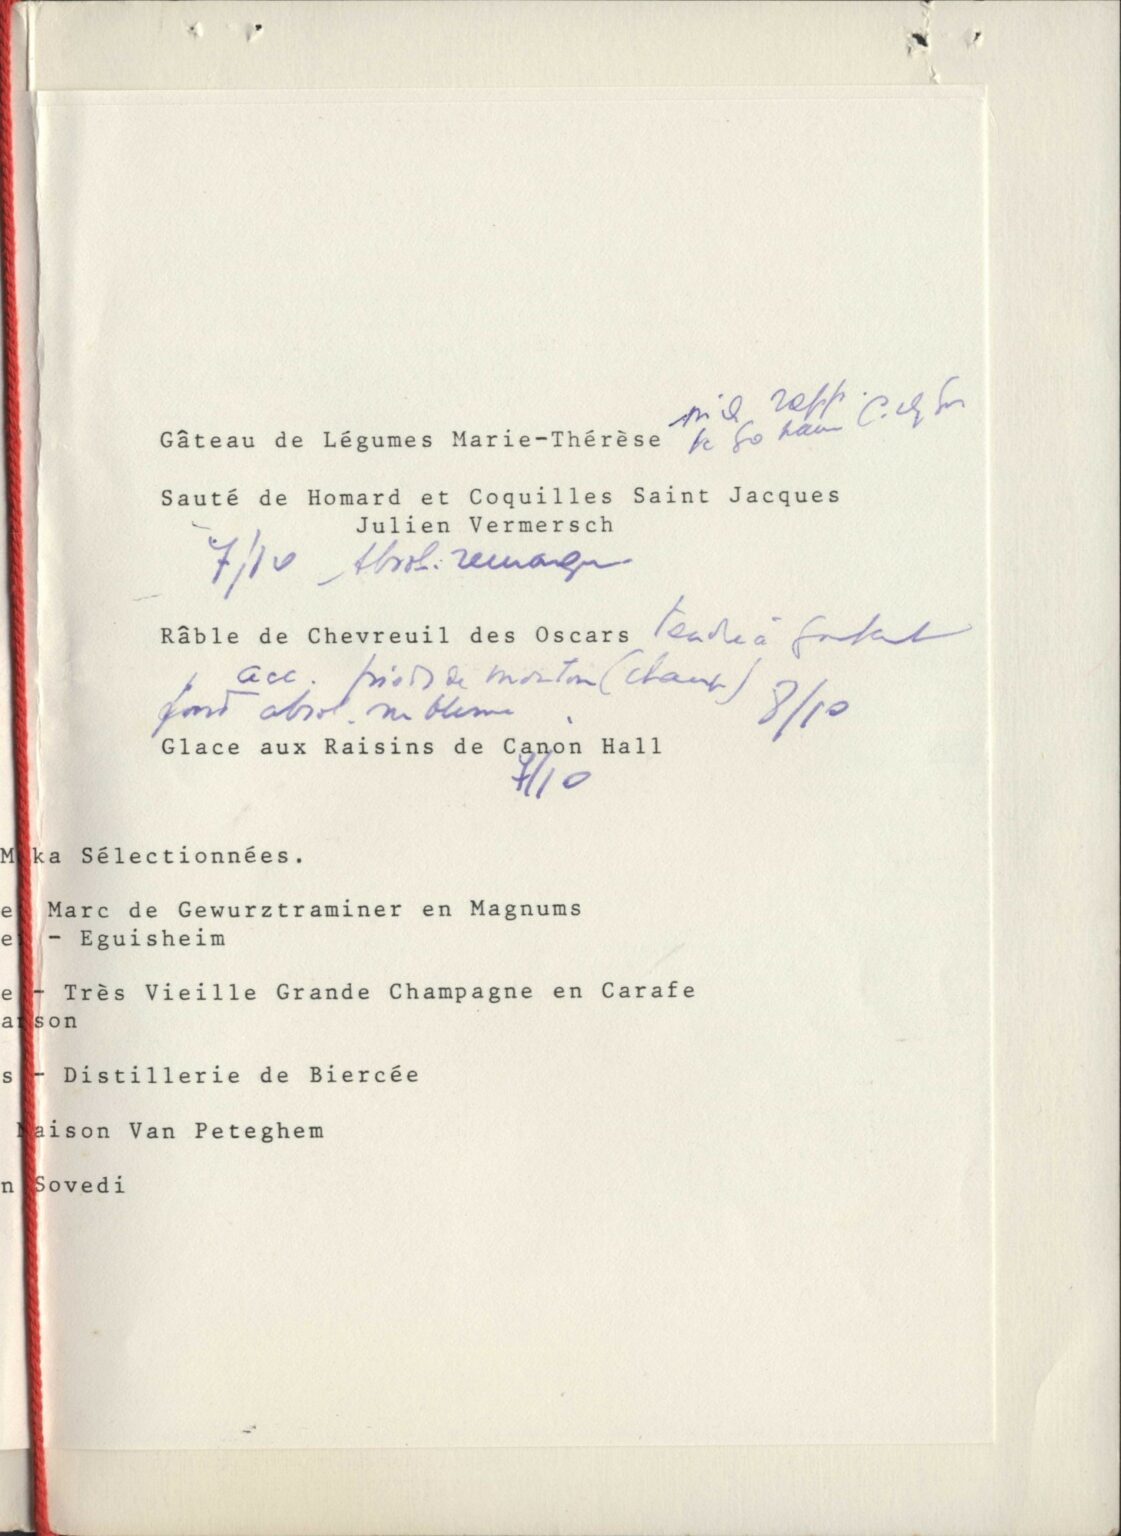 Gâteau de Légumes Marie-Thérèse
Sauté de Homard et Coquilles Saint Jacques
Julien Vermersch
7/10 Absol. remarqu
Râble de Chevreuil des Oscars tendre à
acc. pieds de mouton (champ)
fond absol. sublime 8/10
Glace aux Raisins de Canon Hall
7/10
M ka Sélectionnées.
e Marc de Gewurztraminer en Magnums
e - Eguisheim
e - Très Vieille Grande Champagne en Carafe
anson
s - Distillerie de Biercée
Maison Van Peteghem
n Sovedi